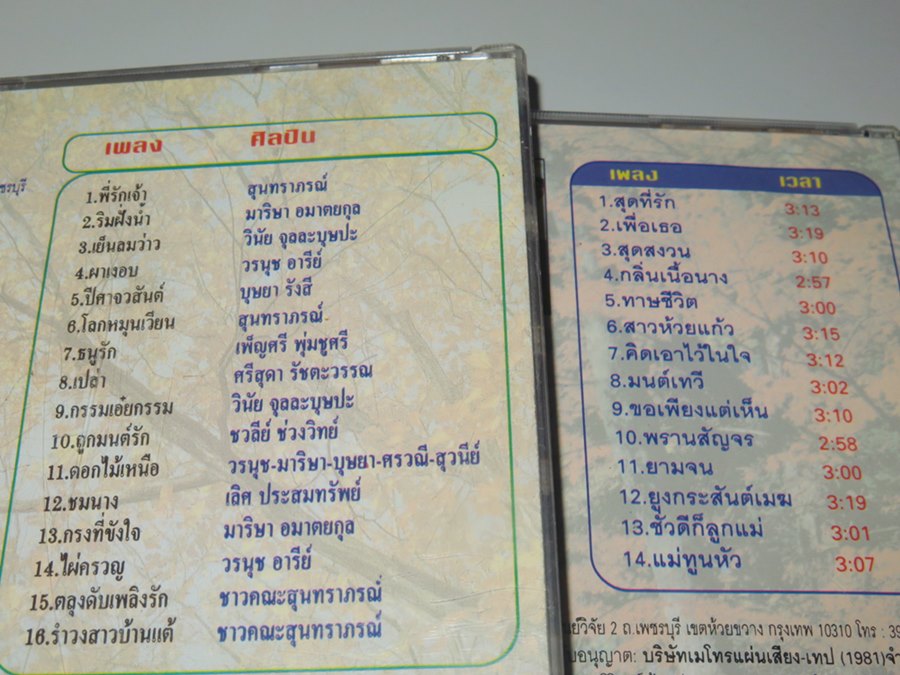 เพลง ศิลปิน
ชรบุรี
1.พี่รักเจ้า สุนทราภรณ์
2.ริมฝั่งน้ำ มาริษา อมาตยกุล
3.เย็นลมว่าว วินัย จุลละบุษปะ
4.ผาเงอบ วรนุช อารีย์
5.ปีศาจวสันต์ บุษยา รังสี
6.โลกหมุนเวียน สุนทราภรณ์
7.ธนูรัก เพ็ญศรี พุ่มชูศรี
8.เปล่า ศรีสุดา รัชตะวรรณ
9.กรรมเอ๋ยกรรม วินัย จุลละบุษปะ
10.ถูกมนต์รัก ชวลีย์ ช่วงวิทย์
11.ดอกไม้เหนือ วรนุช-มาริษา-บุษยา-ศรวณี-สุวนีย์
12.ชมนาง เลิศ ประสมทรัพย์
13.กรงที่ขังใจ มาริษา อมาตยกุล
14.ไผ่ครวญ วรนุช อารีย์
15.ตลุงดับเพลิงรัก ชาวคณะสุนทราภรณ์
16.รำวงสาวบ้านแต้ ชาวคณะสุนทราภรณ์
เพลง เวลา
1.สุดที่รัก 3:13
2.เพื่อเธอ 3:19
3.สุดสงวน 3:10
4.กลิ่นเนื้อนาง 2:57
5.ทาษชีวิต 3:00
6.สาวห้วยแก้ว 3:15
7.คิดเอาไว้ในใจ 3:12
8.มนต์เทวี 3:02
9.ขอเพียงแต่เห็น 3:10
10.พรานสัญจร 2:58
11.ยามจน 3:00
12.ยูงกระสันต์เมฆ 3:19
13.ชั่วดีก็ลูกแม่ 3:01
14.แม่ทูนหัว 3:07
ย์วิจัย 2 ถ.เพชรบุรี เขตห้วยขวาง กรุงเทพ 10310 โทร : 39
บอนุญาต: บริษัทเมโทรแผ่นเสียง-เทป (1981)จำ